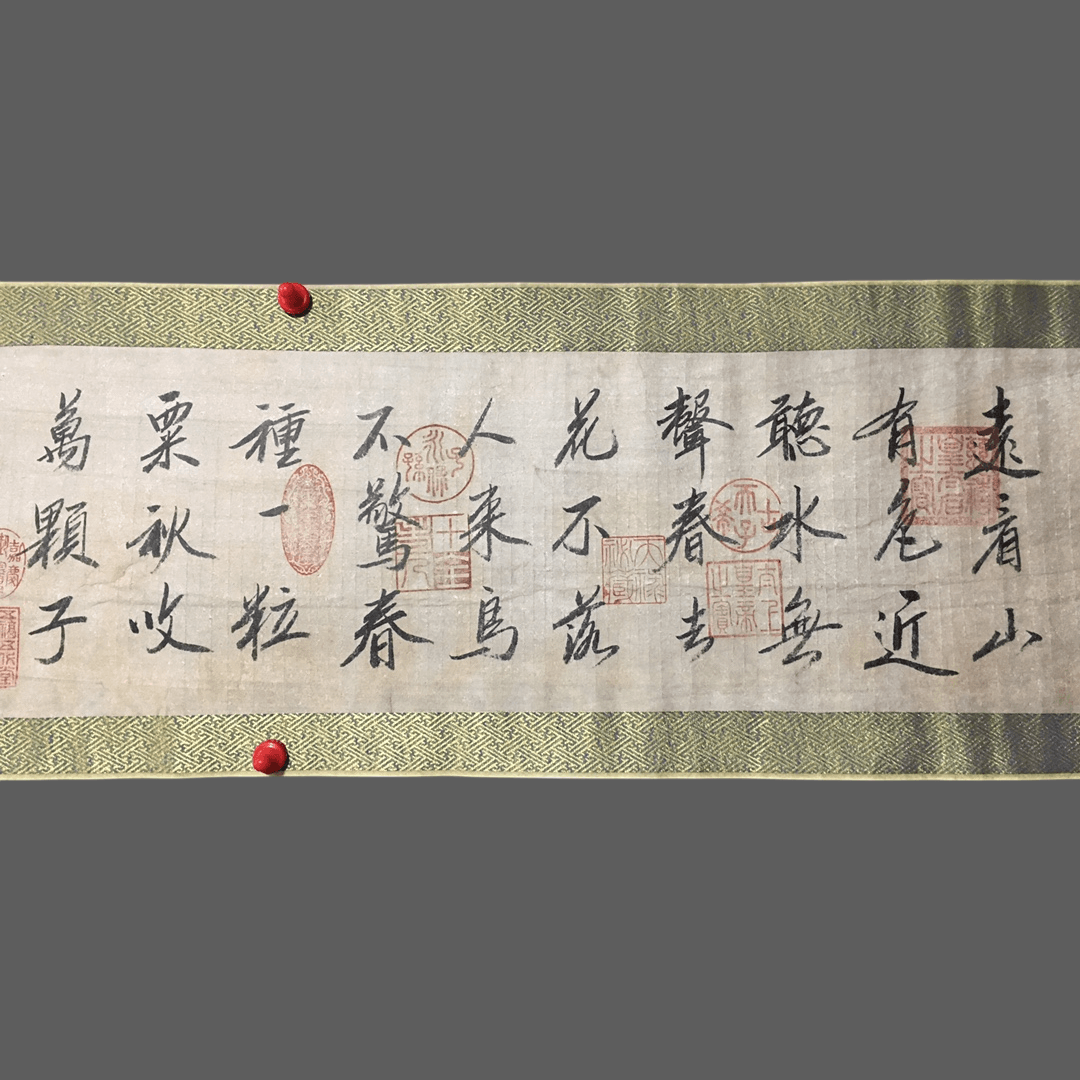 遠看山
有色近
聽水無
聲春去
花不落
人來鳥
不驚春
種一粒
粟秋收
萬顆子